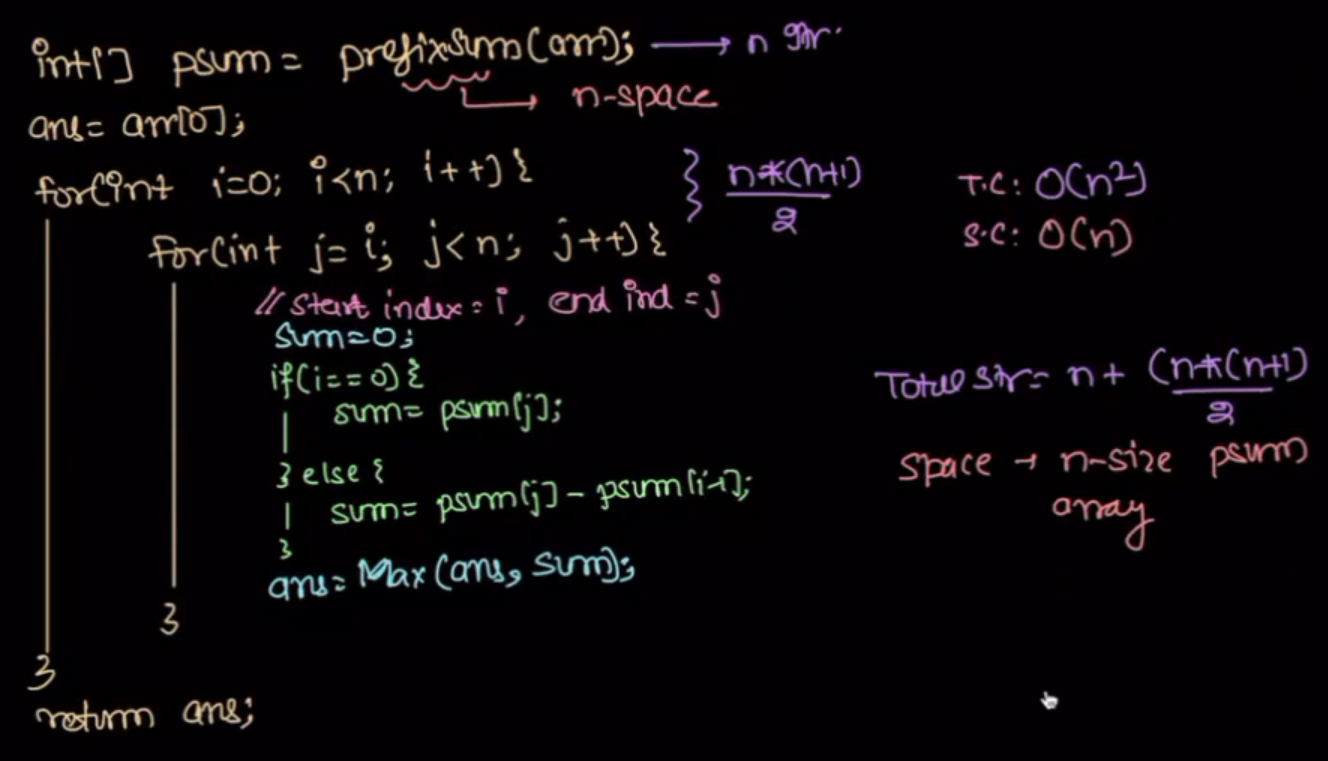 int[] psum = prefixsum(arr); → n itr.
→ n-space
ans= arr[0];
for(int i=0; i<n; i++){ } n*(n+1)/2
T.C: O(n2)
for(int j=i; j<n; j++){
S.C: O(n)
// Start index = i, end ind = j
sum=0;
if(i==0){
sum= psum[j];
} else {
sum= psum[j] - psum[i-1];
}
ans= Max(ans, sum);
}
}
return ans;
Total itr= n + (n*(n+1)/2
space → n-size psum
array